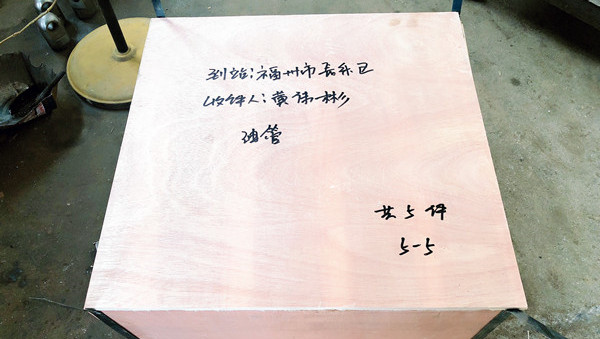 到站:福州市长乐区
收件人:黄 彬
油管
共5件
5-5